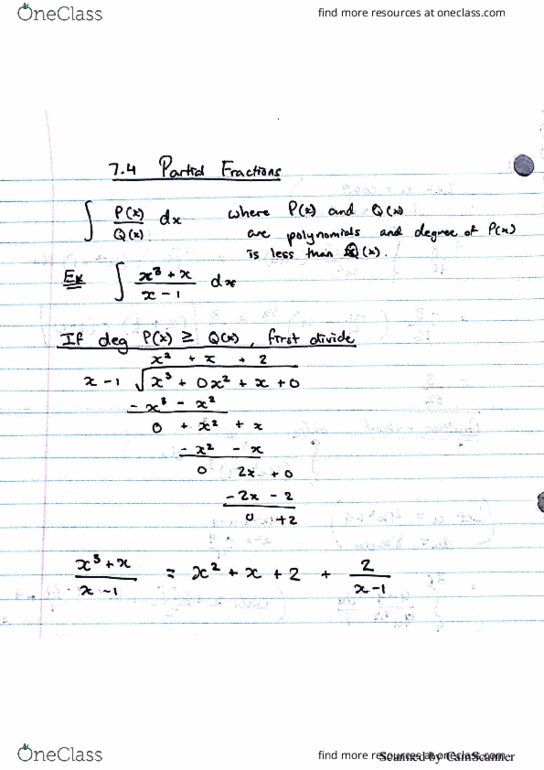 OneClass
find more resources at oneclass.com
7.4 Partial Fractions
∫ P(x)/Q(x) dx where P(x) and Q(x)
are polynomials and degree of P(x)
is less than Q(x).
Ex ∫ x³ + x / x - 1 dx
If deg P(x) ≥ Q(x), first divide
x² + x + 2
x - 1 √ x³ + 0x² + x + 0
- x³ - x²
0 + x² + x
- x² - x
0 2x + 0
- 2x - 2
0 + 2
x³ + x / x - 1 = x² + x + 2 + 2 / x - 1
OneClass
find more resources at oneclass.com
Scanned by CamScanner